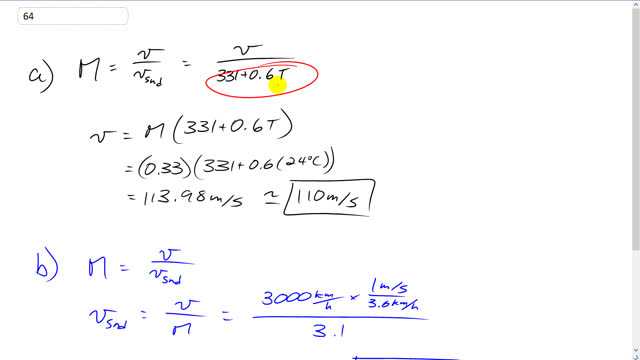 64
a) M = v/v_snd = v/(331+0.6T)
v = M(331+0.6T)
= (0.33)(331+0.6(24°C))
= 113.98m/s ≃ 110m/s
b) M = v/v_snd
v_snd = v/M = (3000 km/h × 1m/s/3.6km/h)/3.1